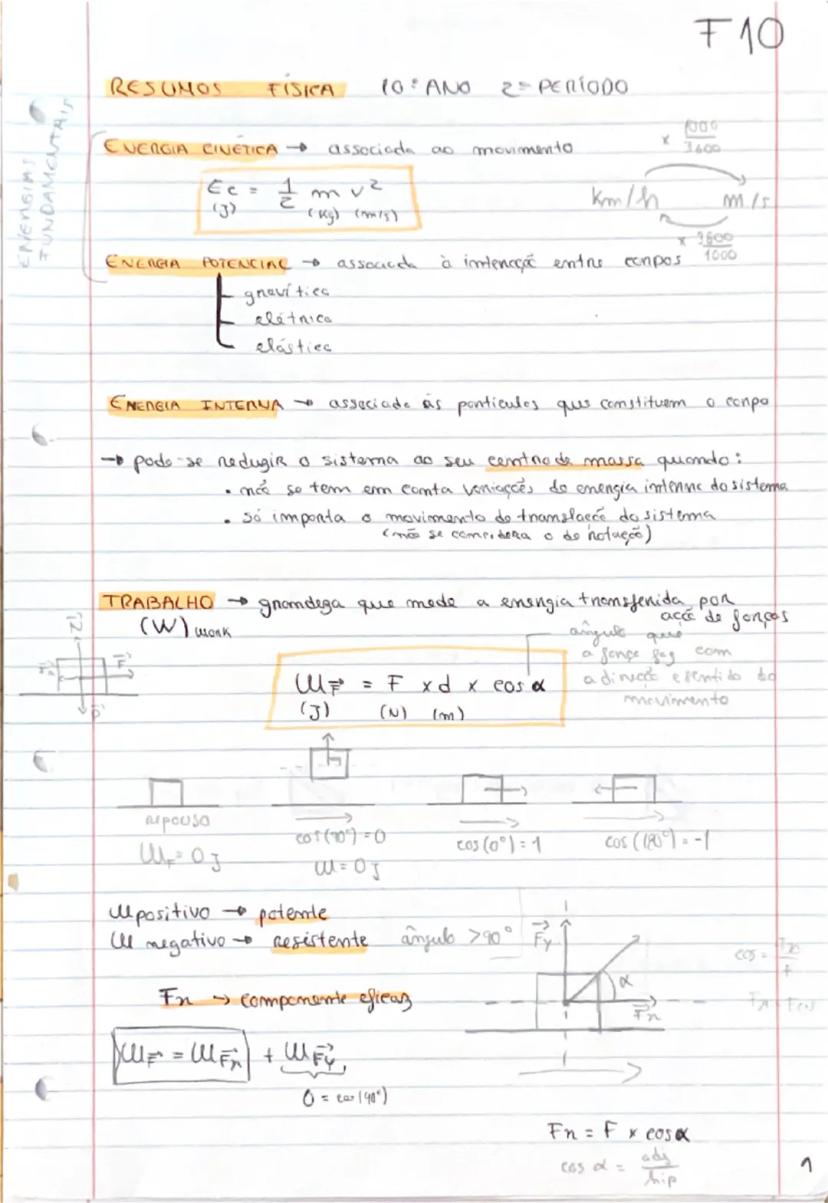 F10
RESUMOS FÍSICA 10º ANO 2º PERÍODO
ENERGIAS FUNDAMENTAIS
ENERGIA CINÉTICA → associada ao movimento
Ec = 1/2 m v²
(J) (Kg) (m/s)
x 1000/3600
Km/h m/s
x 3600/1000
ENERGIA POTENCIAL → associada à interação entre corpos
gravítica
elétrica
elástica
ENERGIA INTERNA → associada às partículas que constituem o corpo
→ pode-se reduzir o sistema ao seu centro de massa quando:
• não se tem em conta variações de energia interna do sistema
• só importa o movimento de translação do sistema
(não se considera o de rotação)
TRABALHO → grandeza que mede a energia transferida por
ação de forças
(W) work
ângulo que
a força faz com
a direção e sentido do
movimento
W F⃗ = F x d x cos α
(J) (N) (m)
repouso
W F = 0 J
cos(90°) = 0
W = 0 J
cos(0°) = 1
cos(180°) = -1
W positivo → potente
W negativo → resistente ângulo >90°
Fx → componente eficaz
W F⃗ = W F⃗x + W F⃗y
0 = cos(90°)
F⃗y
α
F⃗x
Fx = F x cos α
cos α = adj/hip
1